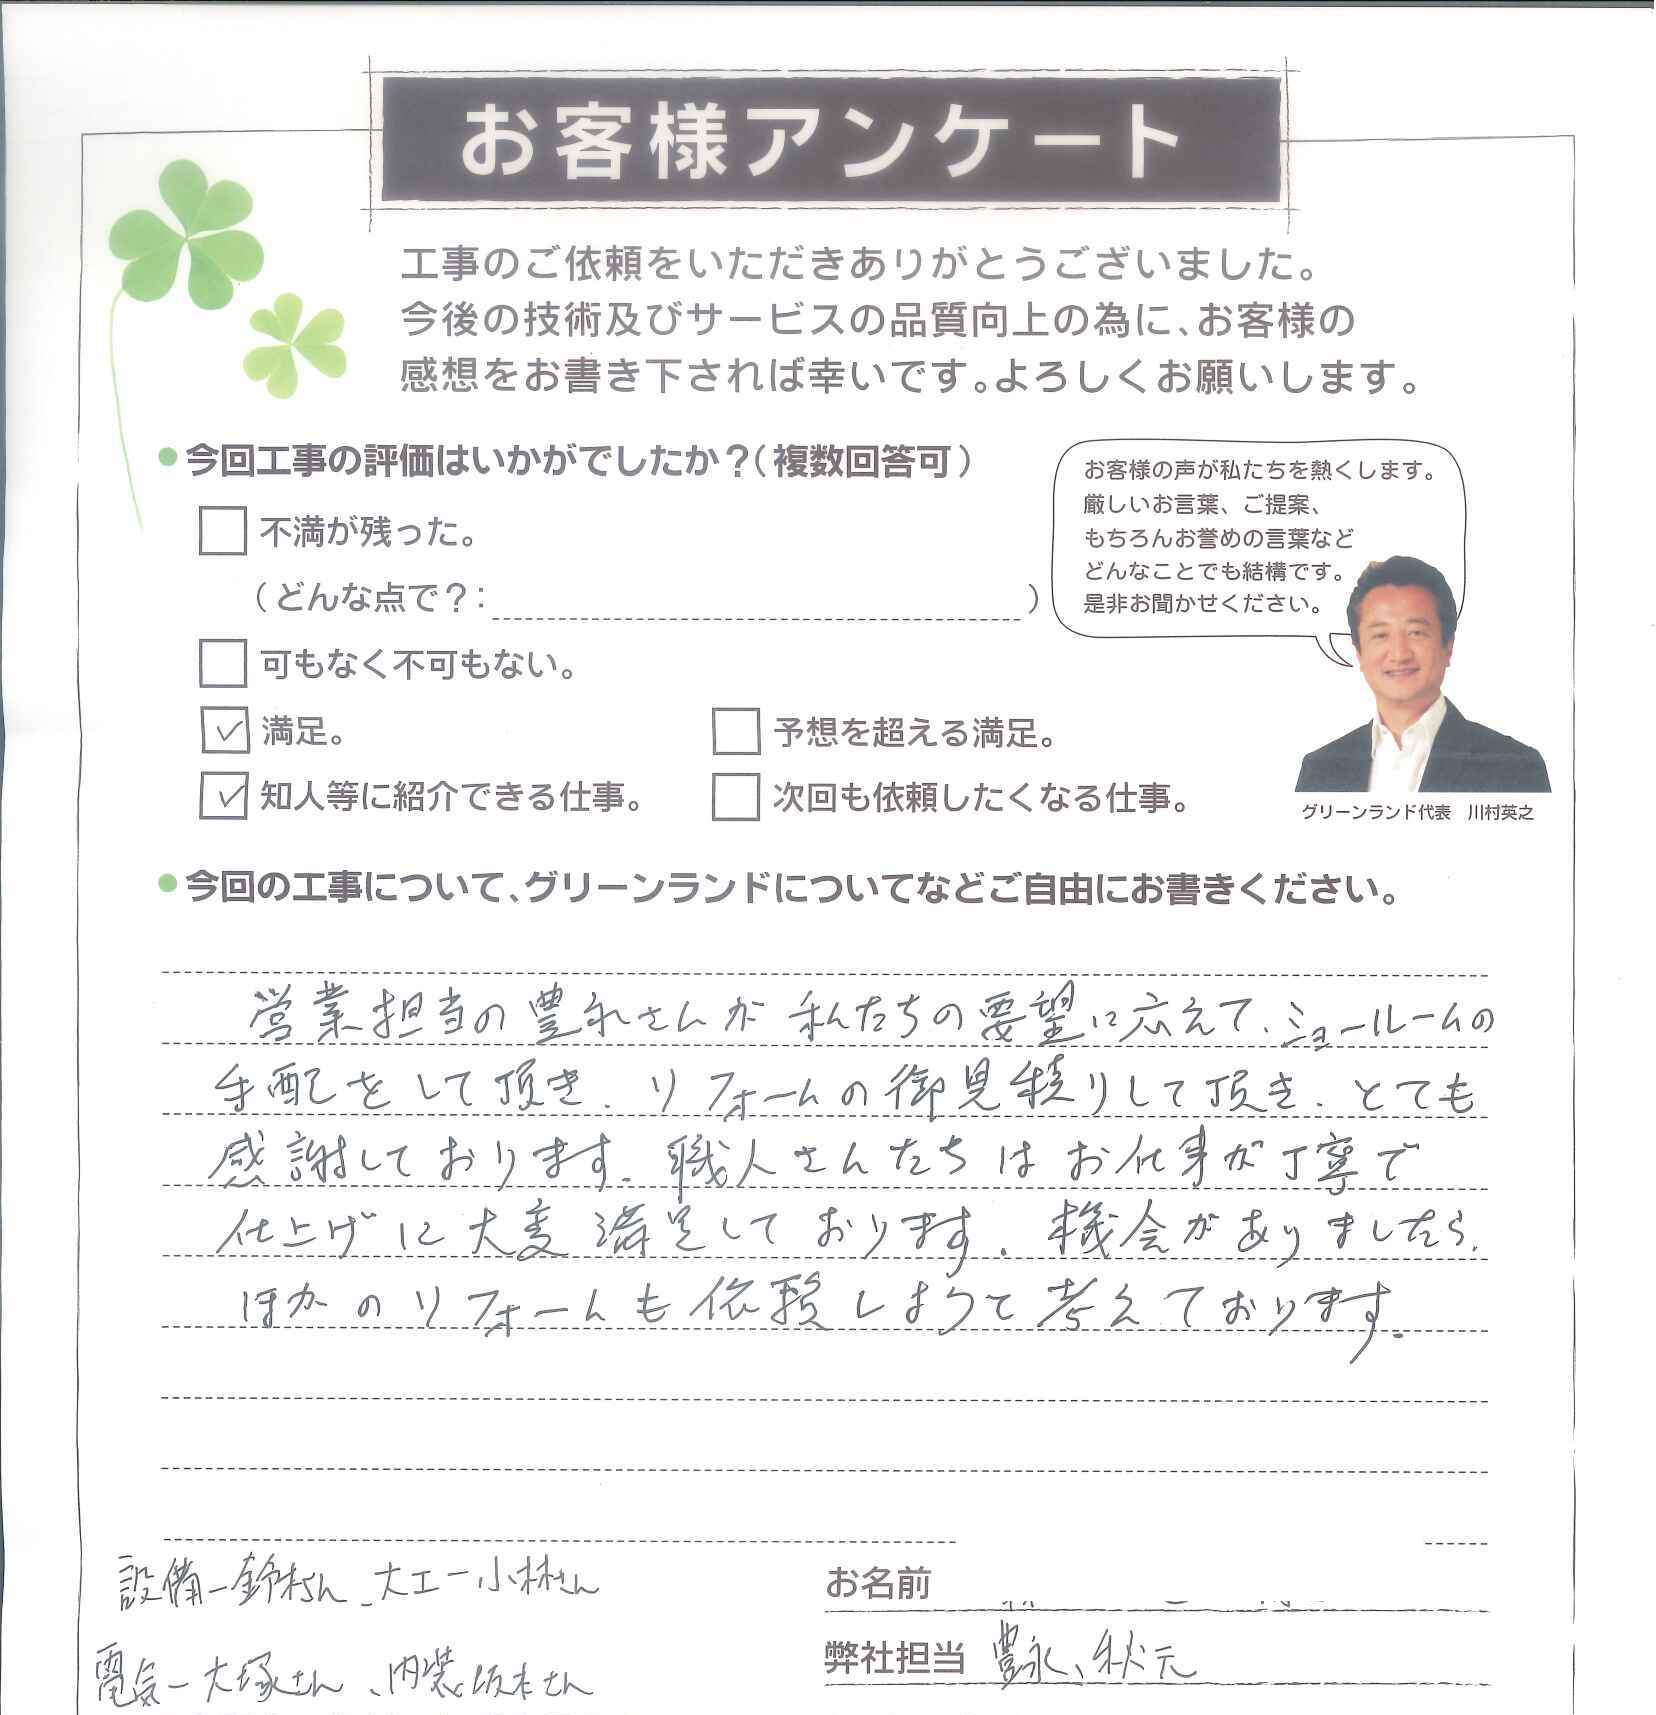 お客様アンケート
工事のご依頼をいただきありがとうございました。
今後の技術及びサービスの品質向上の為に、お客様の
感想をお書き下されば幸いです。よろしくお願いします。
今回工事の評価はいかがでしたか？（複数回答可）
不満が残った。
（どんな点で？：　）
可もなく不可もない。
満足。
予想を超える満足。
知人等に紹介できる仕事。
次回も依頼したくなる仕事。
お客様の声が私たちを熱くします。
厳しいお言葉、ご提案、
もちろんお誉めの言葉など
どんなことでも結構です。
是非お聞かせください。
グリーンランド代表　川村英之
今回の工事について、グリーンランドについてなどご自由にお書きください。
営業担当の豊永さんが私たちの要望に応えて、ショールームの
手配をして頂き、リフォームの御見積りして頂き、とても
感謝しております。職人さんたちはお仕事が丁寧で
仕上げに大変満足しております。機会がありましたら、
ほかのリフォームも依頼しようと考えております。
設備ー鈴木さん、大工ー小林さん
電気ー大塚さん、内装坂本さん
お名前
弊社担当 豊永、秋元